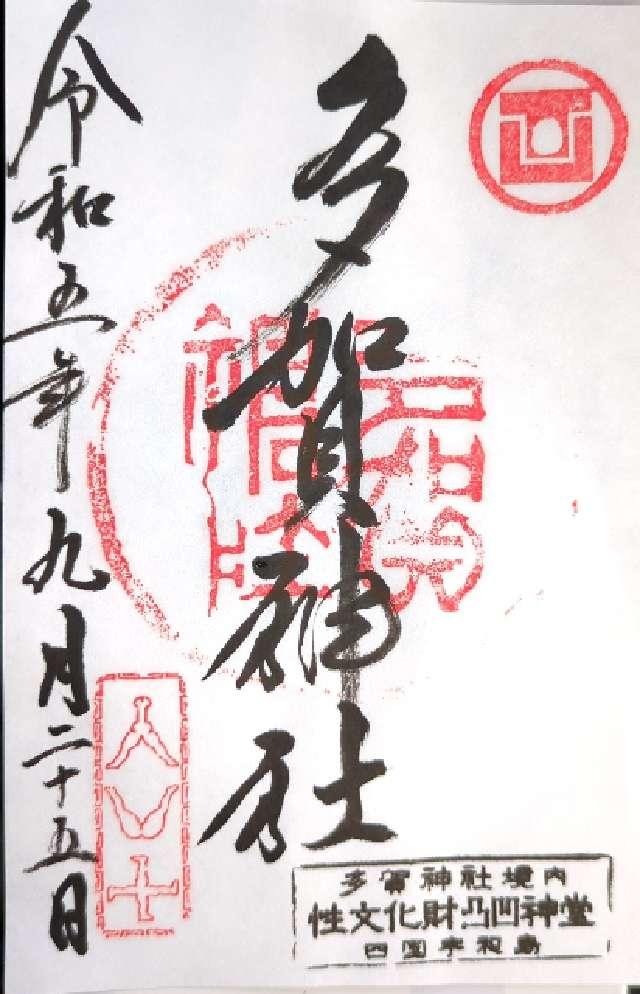 多賀神社
令和五年九月二十五日
多賀神社境内
性文化財凸凹神堂
四国宇和島